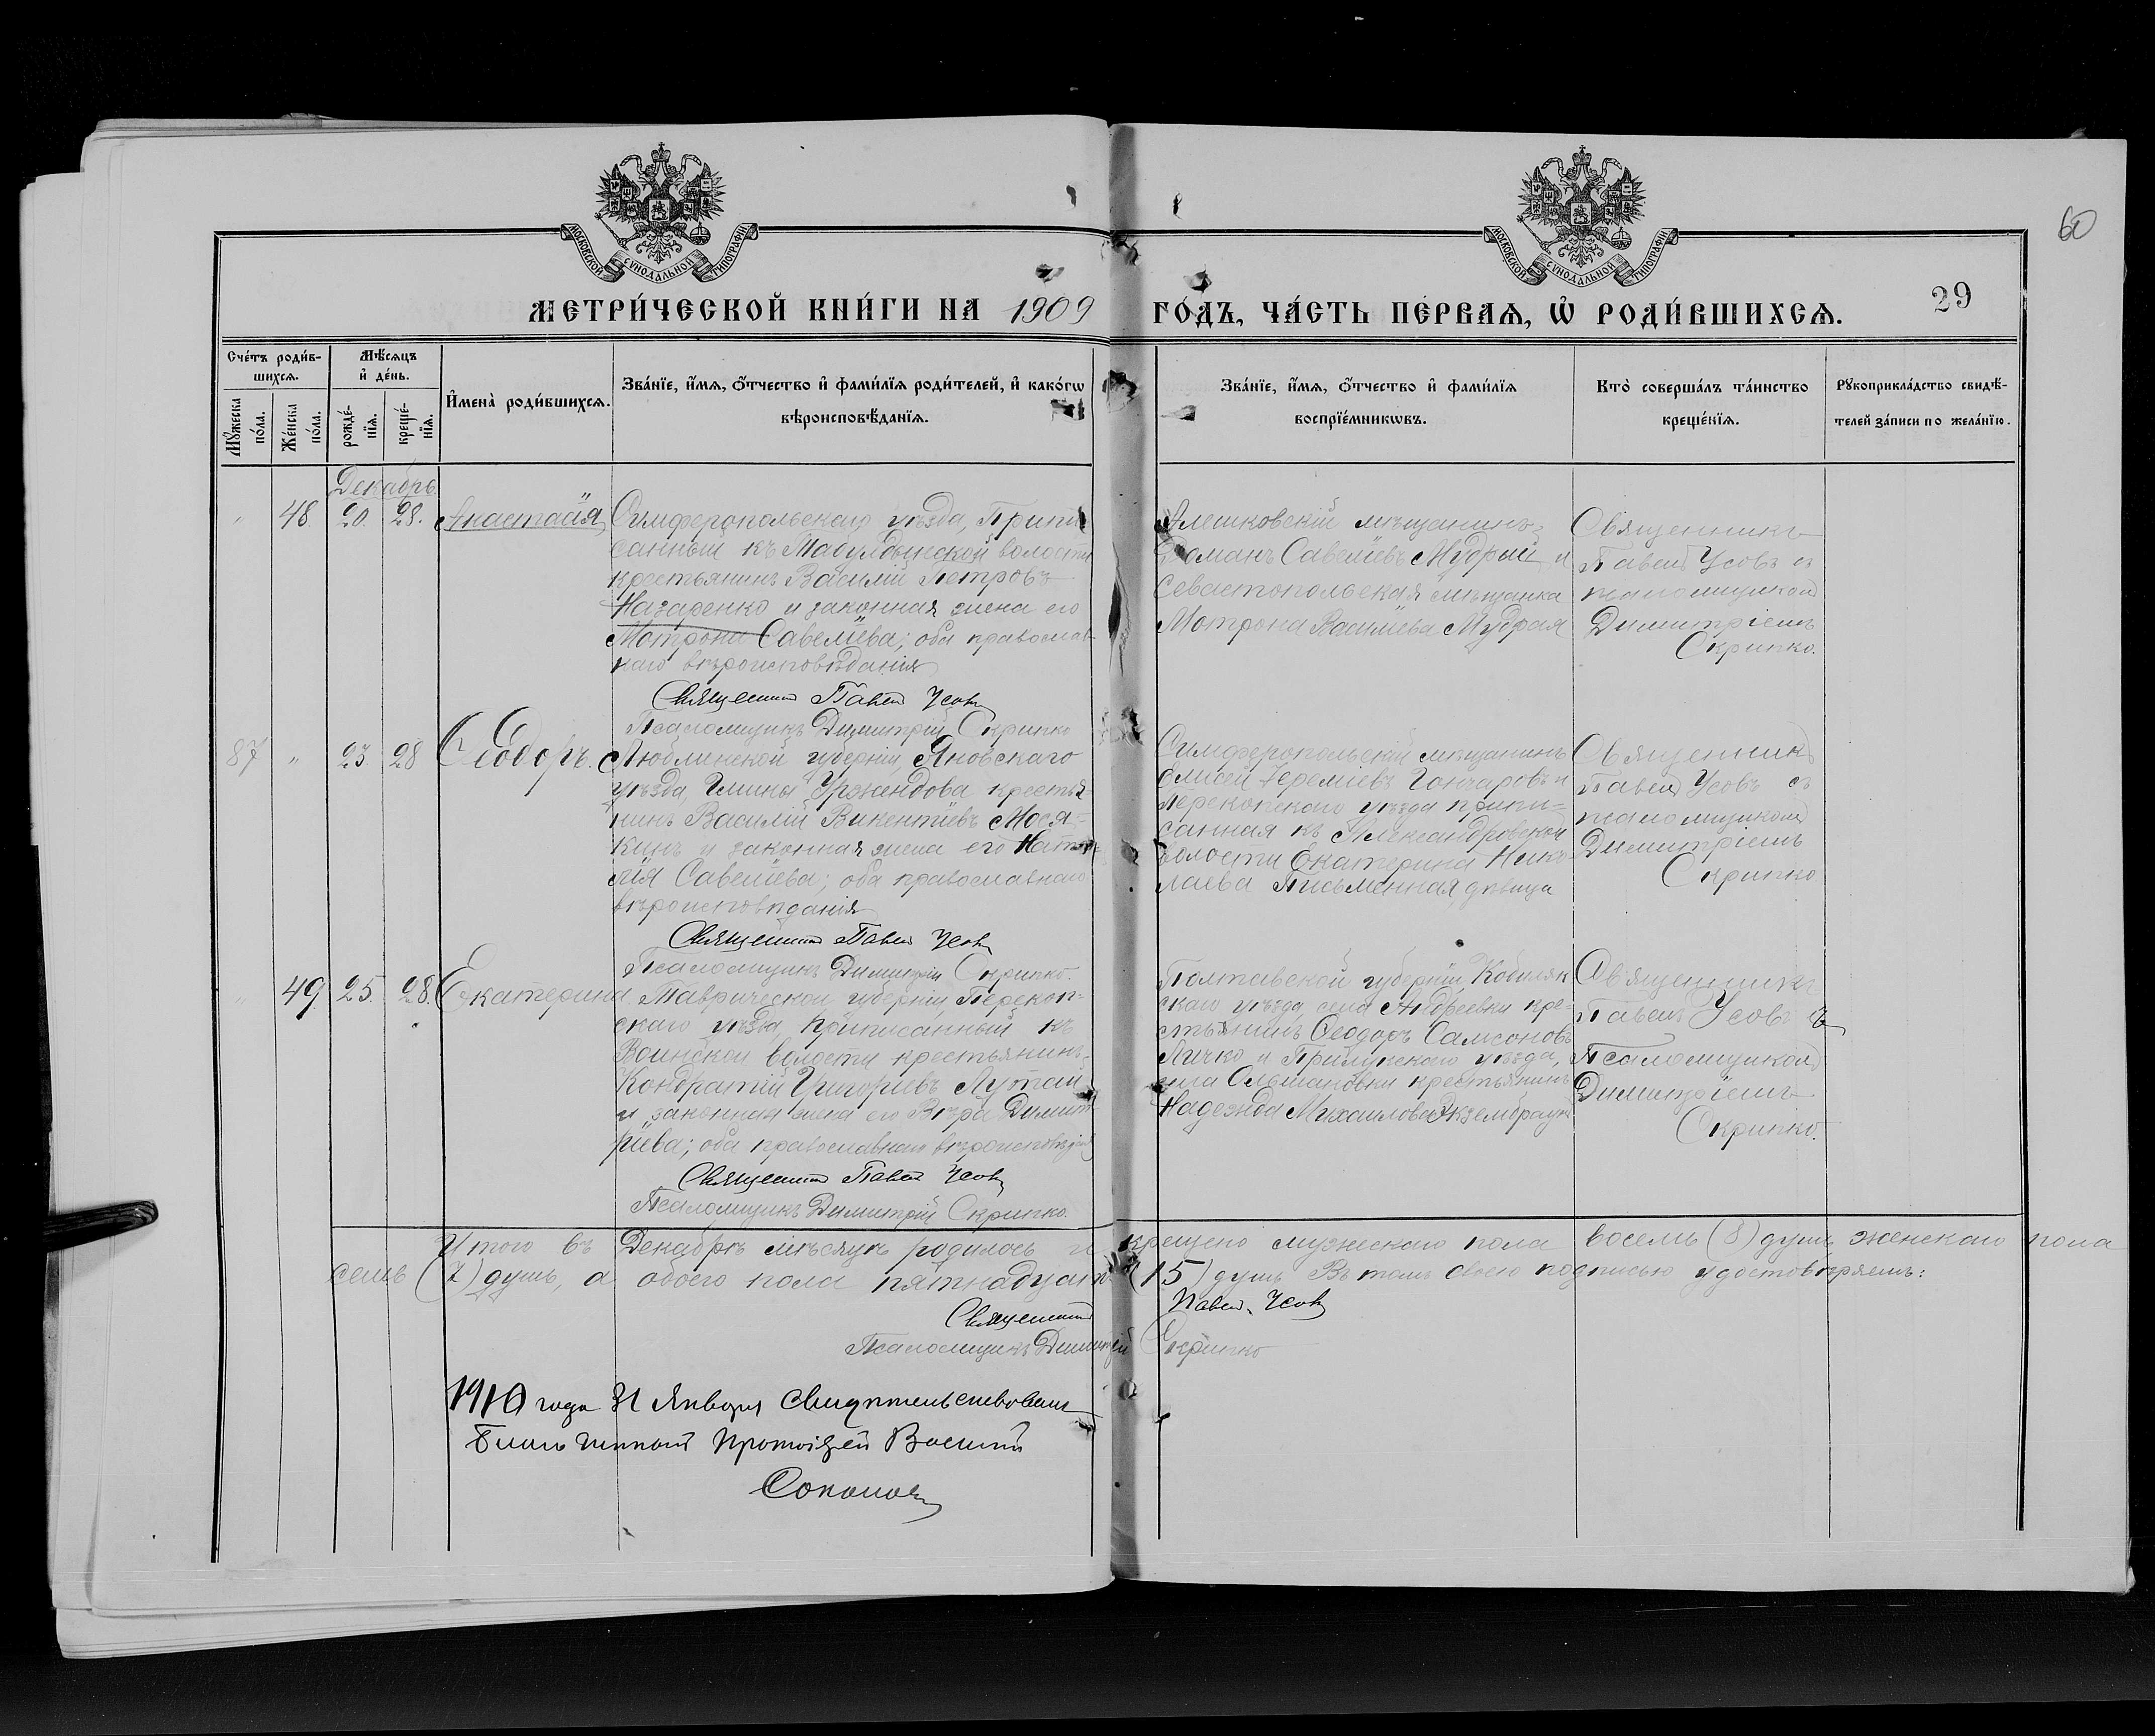 60
МОСКОВСКОЙ СѴНОДАЛЬНОЙ ТИПОГРАФІИ
МОСКОВСКОЙ СѴНОДАЛЬНОЙ ТИПОГРАФІИ
МЕТРИ́ЧЕСКОЙ КНИ́ГИ НА 1909 ГО́ДЪ, ЧА́СТЬ ПЕ́РВАѦ, Ѡ҆ РОДИ́ВШИХСѦ. 29
Сче́тъ роди́в-
шихсѧ.
Мꙋ́жеска по́ла.
Же́нска по́ла.
Мѣ́сѧцъ
и҆ де́нь.
рожде́-
нїѧ.
креще́-
нїѧ.
И҆мена̀ роди́вшихсѧ.
Зва́нїе, и҆́мѧ, ѻ҆́тчество и҆ фами́лїѧ роди́телей, и҆ како́гѡ
вѣроисповѣ́данїѧ.
Зва́нїе, и҆́мѧ, ѻ҆́тчество и҆ фами́лїѧ
воспрїе́мникѡвъ.
Кто̀ соверша́лъ та́инство
креще́нїѧ.
Рꙋкоприкла́дство свидѣ́-
телей за́писи по жела́нїю.
Декабрь.
" 48. 20. 28. Анастасія
Симферопольскаго уѣзда, Припи
санный къ Табулдинской волости
крестьянинъ Василій Петровъ
Назаренко и законная жена его
Мотрона Савеліева; оба православ-
наго вѣроисповѣданія
Священникъ Павелъ Усовъ
Псаломщикъ Димитрій Скрипко
Алешковскій мѣщанинъ
Романъ Савеліевъ Мудрый и
Севастопольская мѣщанка
Мотрона Василіева Мудрая
Священникъ
Павелъ Усовъ съ
псаломщикомъ
Димитріемъ
Скрипко.
87 " 23. 28 Ѳеодоръ.
Люблинской губерніи, Яновскаго
уѣзда, Гмины Уржендова крестья
нинъ Василій Викентіевъ Мося-
кинъ и законная жена его Ната-
лія Савеліева; оба православнаго
вѣроисповѣданія
Священникъ Павелъ Усовъ
Псаломщикъ Димитрій Скрипко.
Симферопольскій мѣщанинъ
Елисей Іереміевъ Гончаровъ и
Перекопскаго уѣзда припи-
санная къ Александровской
волости Екатерина Нико-
лаева Письменная, дѣвица
Священникъ
Павелъ Усовъ съ
псаломщикомъ
Димитріемъ
Скрипко
" 49. 25. 28. Екатерина
Таврической губерніи, Перекоп-
скаго уѣзда, Приписанный къ
Воинской волости крестьянинъ
Кондратій Григоріевъ Лутай
и законная жена его Вѣра Димит
ріева; оба православнаго вѣроисповѣданія
Священникъ Павелъ Усовъ
Псаломщикъ Димитрій Скрипко.
Полтавской губерніи, Кобиляк
скаго уѣзда, села Андреевки кре-
стьянинъ Ѳеодоръ Самсоновъ
Личко и Прилукскаго уѣзда,
села Ольшановки
Надежда Михаилова
Священникъ
Павелъ Усовъ съ
Псаломщикомъ
Димитріемъ
Скрипко.
Итого въ Декабрѣ мѣсяцѣ родилось и крещено мужескаго пола восемь (8) душъ, женскаго пола
семь (7) душъ, а обоего пола пятнадцать (15) душъ. Въ томъ своею подписью удостовѣряемъ:
Священникъ Павелъ Усовъ
Псаломщикъ Димитрій Скрипко
1910 года 31 Января свидѣтельствовалъ
Благочинный Протоіерей Василій
Соколовъ